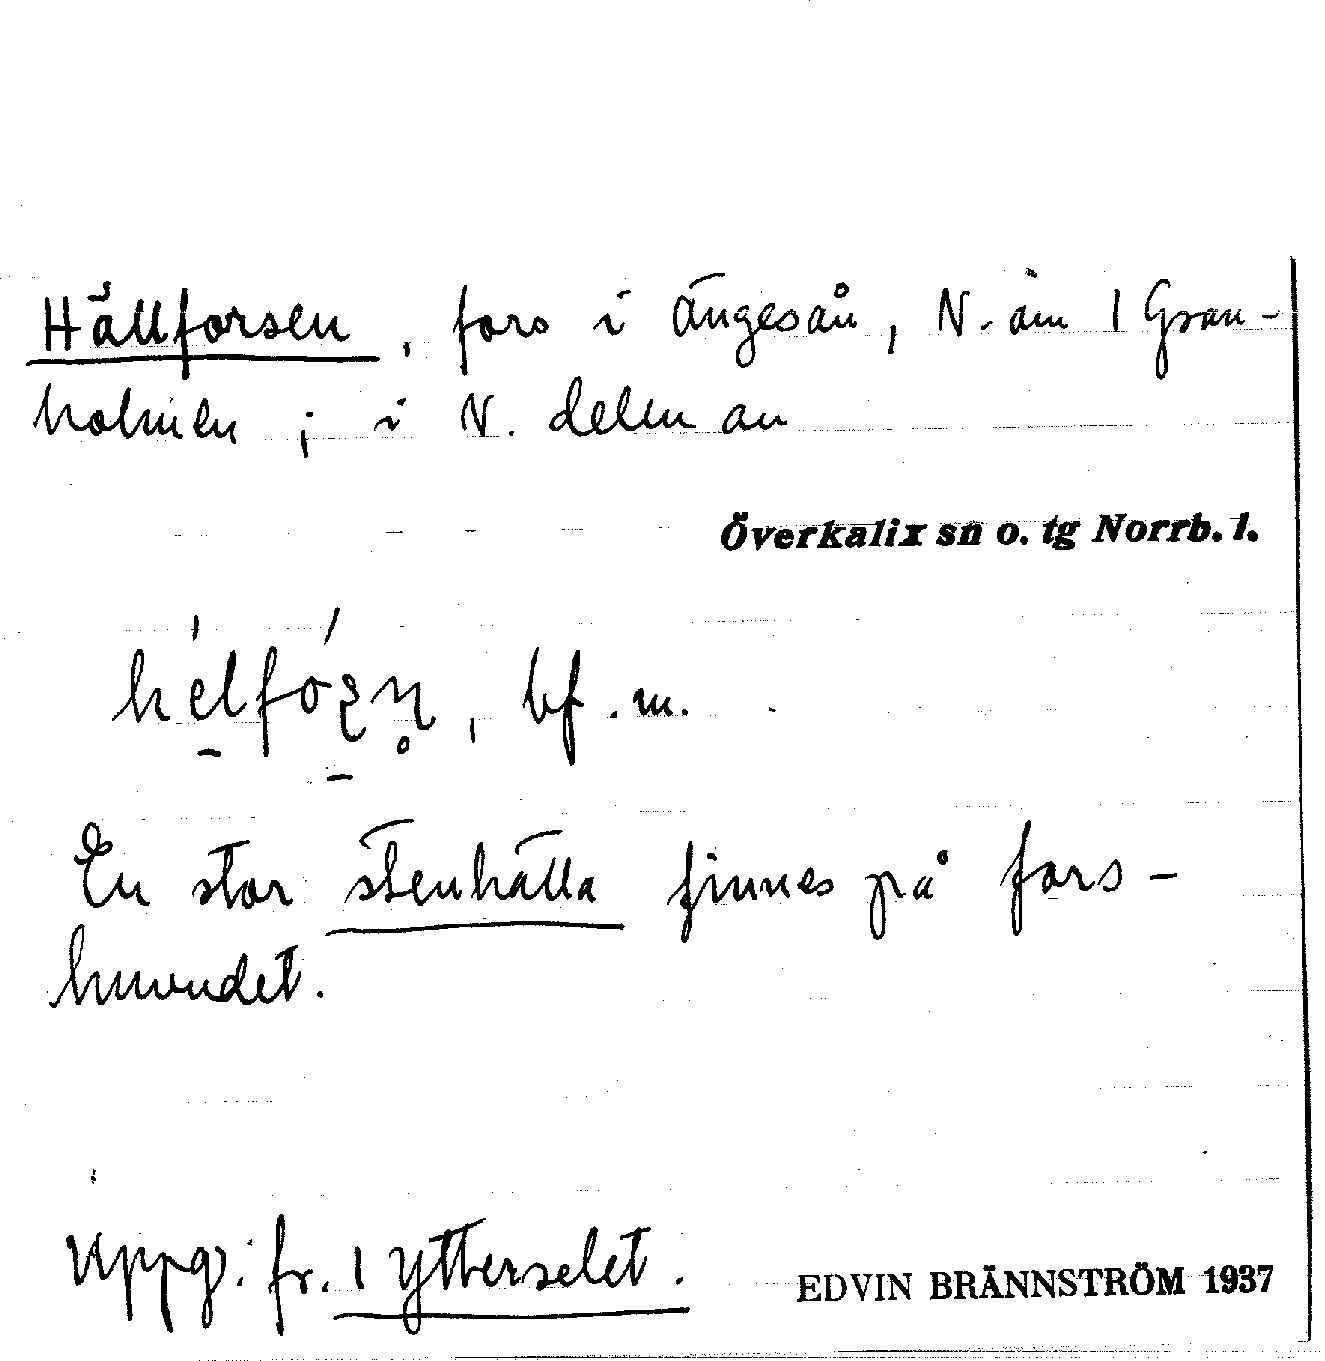 Hällforsen, fors i Ängesån, N. om 1 Gran-
holmen; i N. delen av
Överkalix sn o. tg Norrb. l.
bf. m.
En stor stenhälla finnes på fors-
huvudet.
Uppg. fr. 1 Ytterselet.
EDVIN BRÄNNSTRÖM 1937